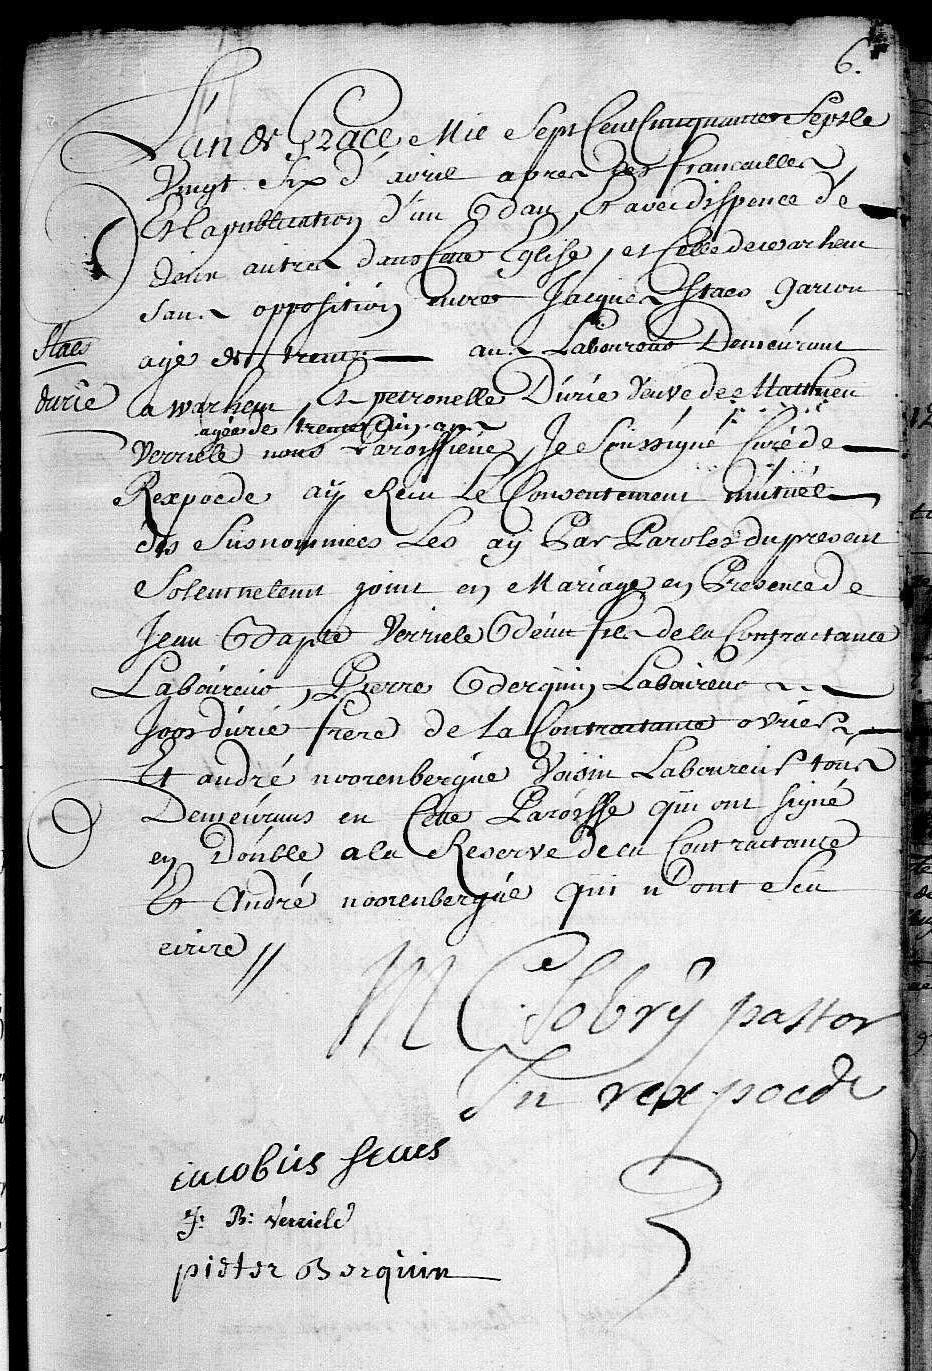 6.
L'an de Grace Mil Sept Cent Cinquante Sept le
Vingt Six d'avril apres les fiancailles
Et la publication d'un Ban, Et avec dispence de
deux autres dans Cette Eglise, et Celle de warhem
sans opposition entre Jacques Staes garcon
Staes
agé de trente ans Laboureur Demeurant
durie
a warhem, Et petronelle Durié veuve de Matthieu
agée de trente Cinq ans
Verriele notre Paroissiene, Je Soussigné Curé de
Rexpoede aÿ Recu Le Consentement mutuel
des Susnommées Les aÿ Par Paroles du present
Solemnelemt joint en Mariage en Presence de
Jean Bapte Verriele Beau fils de la Contractante
Laboureur, Pierre Berquin Laboureur
Joos durié frere de la Contractante ovrier
Et andré noorenbergue Voisin Laboureur tous
Demeurans en Cette Paroisse qui ont signé
en Double a la Reserve de la Contractante
Et André noorenbergue qui n'ont Seu
ecrire //
M C Sobrÿ pastor
In rexpoede
iacobus staes
J: B: Verriele
pieter Berquin